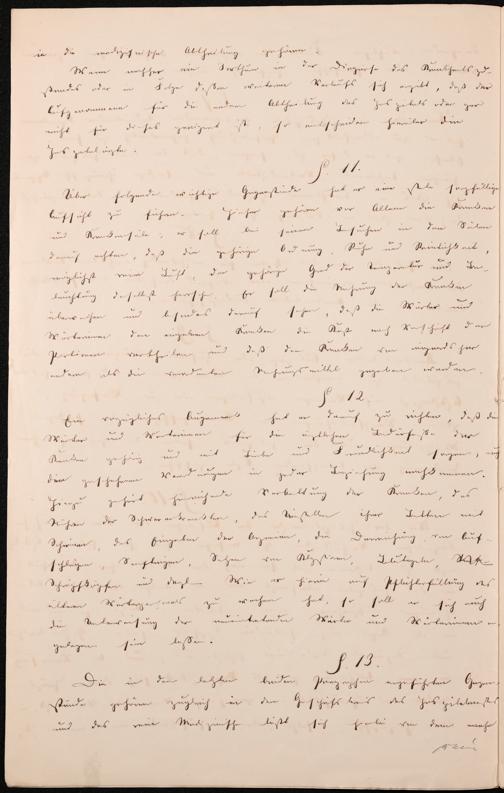 in die medizinische Abtheilung gehören.
Wenn nachher ein Irrthum in der Diagnose des Krankheitszu-
standes oder in Folge dessen weiteren Verlaufs sich ergibt, daß der
Aufgenommene für die andere Abtheilung des Hospitals oder gar
nicht für dieses geeignet ist, so entscheiden hierüber die
Hospitalärzte.
§ 11.
Über folgende wichtige Gegenstände hat er eine stete sorgfältige
Aufsicht zu führen. gehören vor Allem die Kranken
und Krankensäle; er soll bei seinen Besuchen in den Sälen
darauf achten, daß die gehörige Ordnung, Ruhe und Reinlichkeit,
möglichst reine Luft, der gehörige Grad der Temperatur und Be-
leuchtung daselbst herrsche. Er soll die Nahrung der Kranken
überwachen und besonders darauf sehen, daß die Wärter und
Wärterinnen den einzelnen Kranken die Kost nach Vorschrift der
Portionen vertheilen und daß den Kranken von irgendsher
andere als die verordneten Nahrungsmittel gegeben werden.
§ 12
Ein vorzügliches Augenmerk hat er darauf zu richten, daß die
Wärter und Wärterinnen für die ärztlichen Bedürfnisse der
Kranken gehörig und mit Liebe und Freundlichkeit sorgen, und
den in jeder Beziehung nachkommen.
Hierzu gehört hinreichende der Kranken, das
der Schwerkranken, das ihrer Betten mit
Schirmen, das Eingeben der Arzneien, die von Auf-
schlägen, Senfteigen, Setzen von Klystiren, Blutegeln,
Schröpfköpfen und dergl. Wie er hierin auf Pflichterfüllung des
Wärterpersonals zu wachen hat, so soll er sich auch
die Unterweisung der neueintretenden Wärter und Wärterinnen an-
gelegen sein lassen.
§ 13.
Die in den letzten beiden Paragraphen angeführten Gegen-
stände gehören zugleich in den Geschäftskreis des Hospitalarztes
und das rein Medizinische läßt sich hierbei von dem mehr